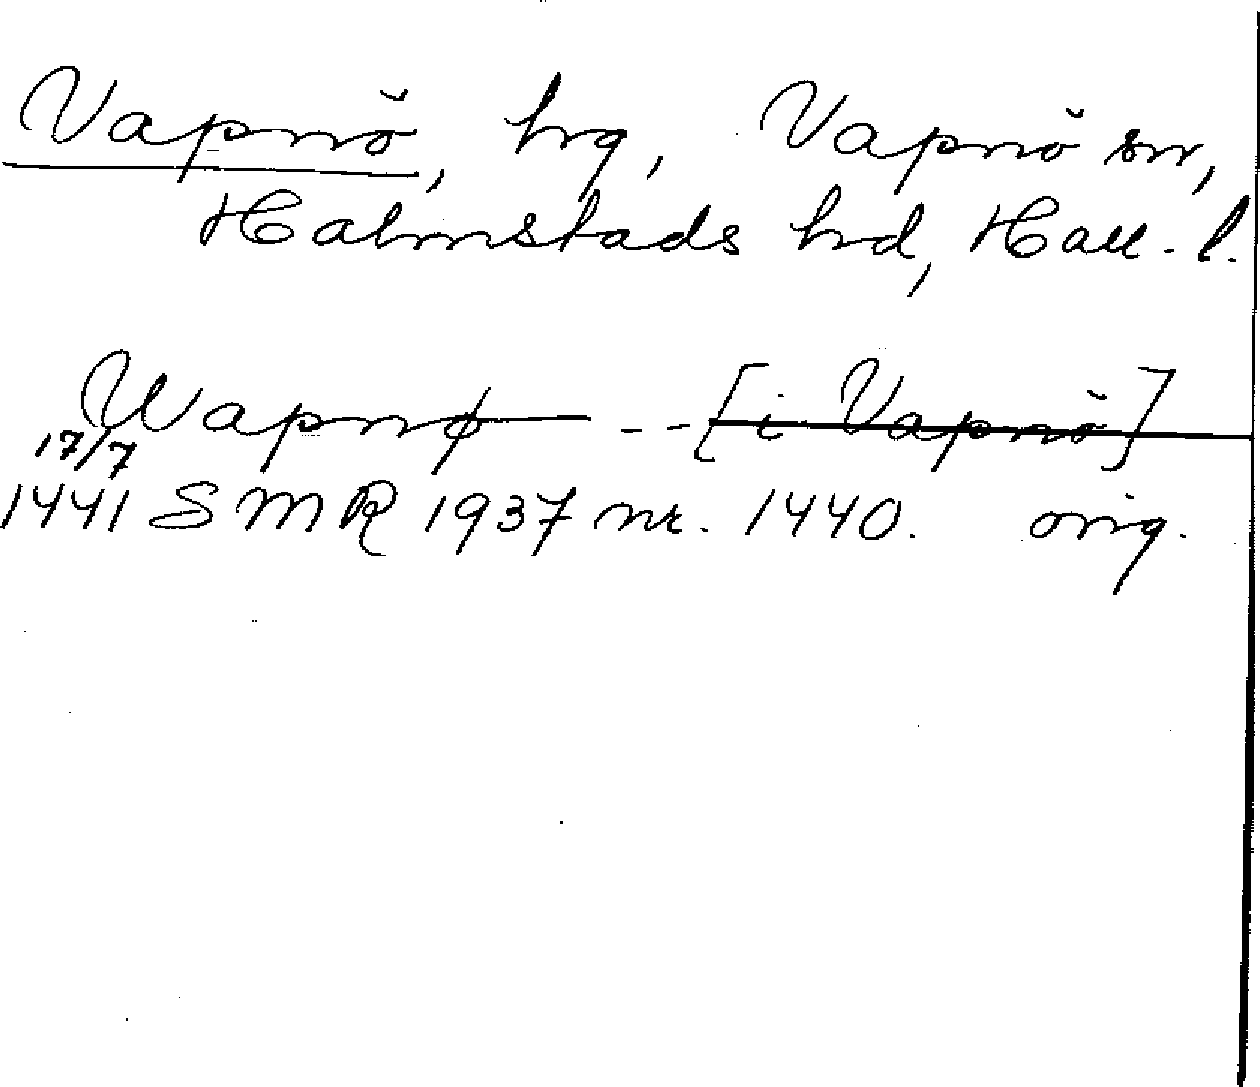 Vapnö, hrg, Vapnö sn,
Halmstads hd, Hall. l.
Wapnø -- [i Vapnö]
17/7
1441 SMR 1937 nr. 1440. orig.